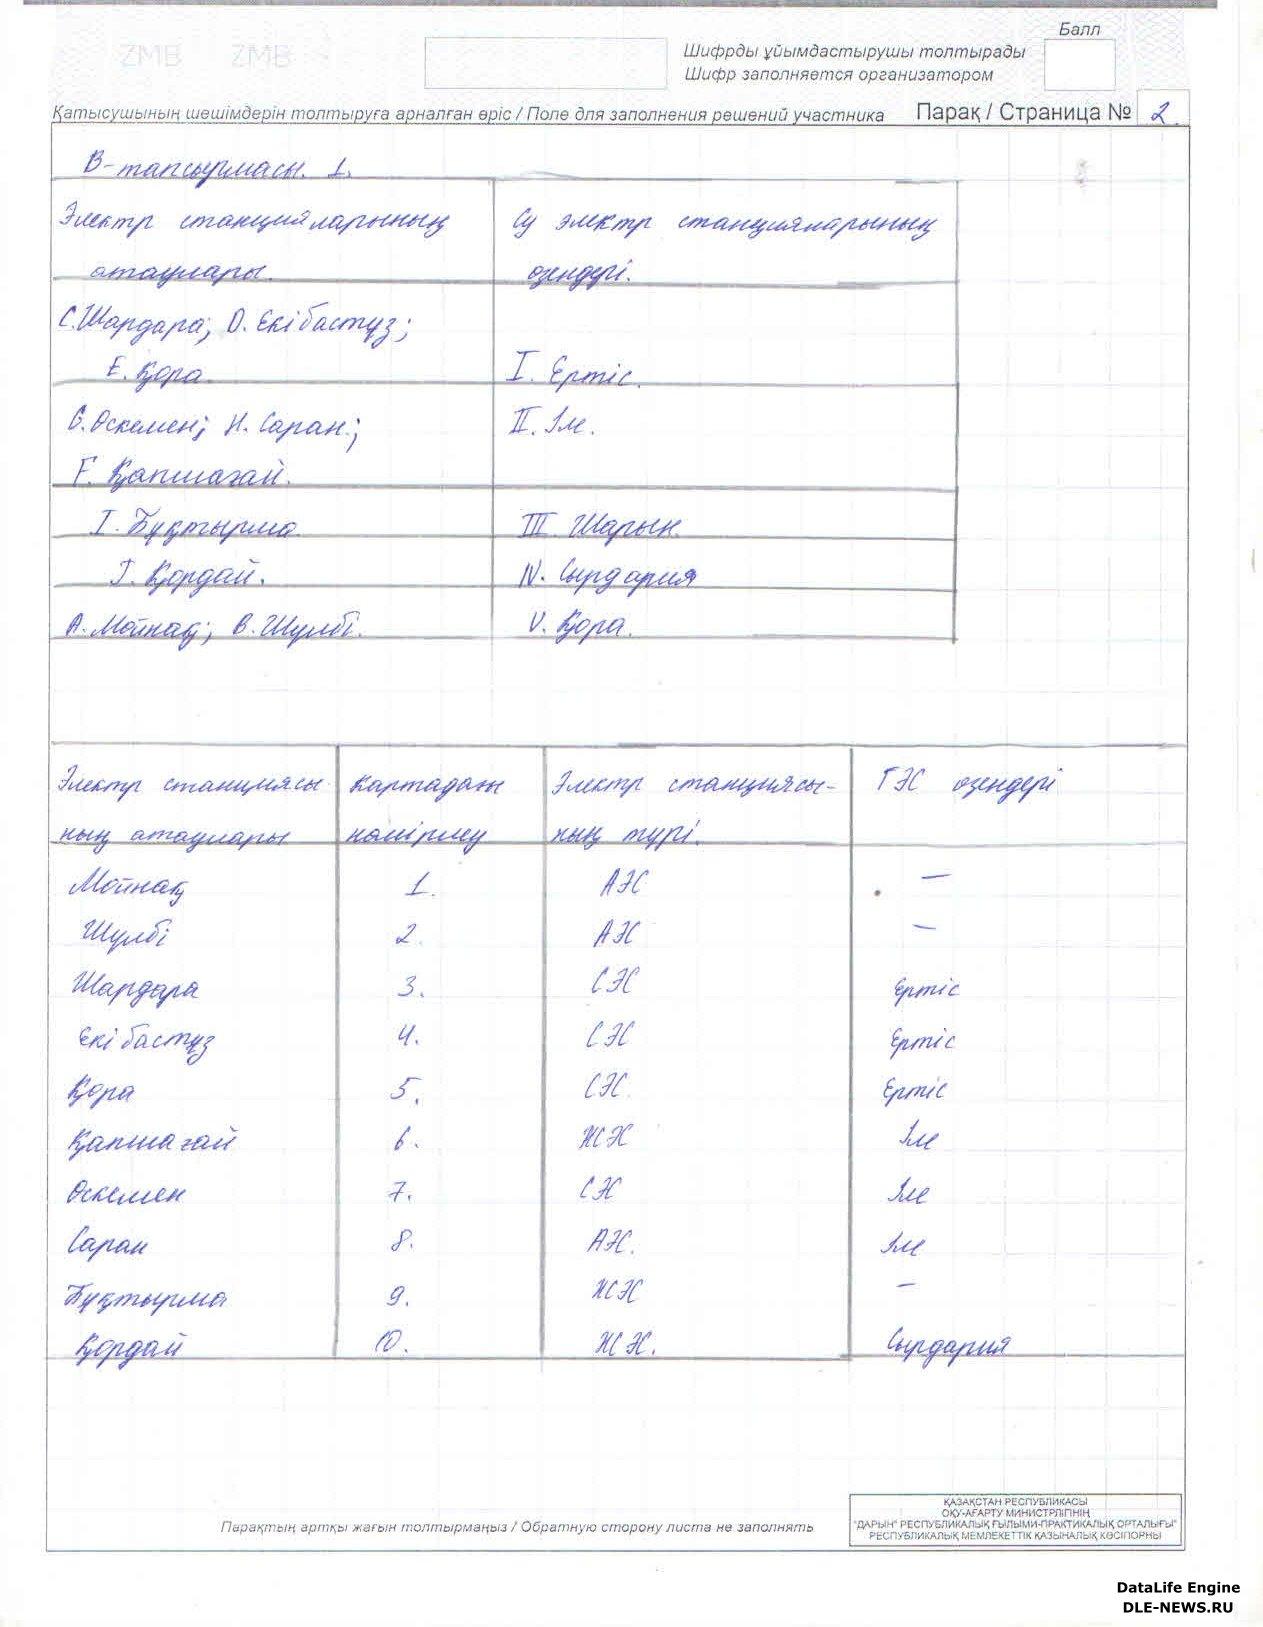 ZMB ZMB
Балл
Шифрды ұйымдастырушы толтырады
Шифр заполняется организатором
Қатысушының шешімдерін толтыруға арналған өріс / Поле для заполнения решений участника Парақ / Страница № 2.
В-тапсырмасы. 1.
Электр станцияларының Су электр станцияларының
атаулары. өзендері.
С. Шардара; D. Екібастұз;
Е. Қора. I. Ертіс.
G. Өскемен; H. Саран.; II. Іле.
F. Қапшағай.
I. Бұқтырма III. Шарын.
J. Қордай. IV. Сырдария
А. Мойнақ; В. Шүлбі. V. Қора.
Электр станциясы- Картадағы Электр станциясы- ГЭС өзендері
ның атаулары нөмірлеу ның түрі.
Мойнақ 1. АЭС —
Шүлбі 2. АЭС —
Шардара 3. СЭС Ертіс
Екібастұз 4. СЭС Ертіс
Қора 5. СЭС. Ертіс
Қапшағай 6. ЖЭС Іле
Өскемен 7. СЭС Іле
Саран 8. АЭС. Іле
Бұқтырма 9. ЖЭС —
Қордай 10. ЖЭС. Сырдария
Парақтың артқы жағын толтырмаңыз / Обратную сторону листа не заполнять
ҚАЗАҚСТАН РЕСПУБЛИКАСЫ
ОҚУ-АҒАРТУ МИНИСТРЛІГІНІҢ
"ДАРЫН" РЕСПУБЛИКАЛЫҚ ҒЫЛЫМИ-ПРАКТИКАЛЫҚ ОРТАЛЫҒЫ"
РЕСПУБЛИКАЛЫҚ МЕМЛЕКЕТТІК ҚАЗЫНАЛЫҚ КӘСІПОРНЫ
DataLife Engine
DLE-NEWS.RU